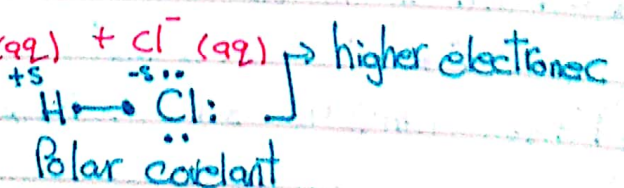 (aq) + Cl⁻ (aq)
→ higher electronec
+S -S
H •—• Cl:
Polar covelant